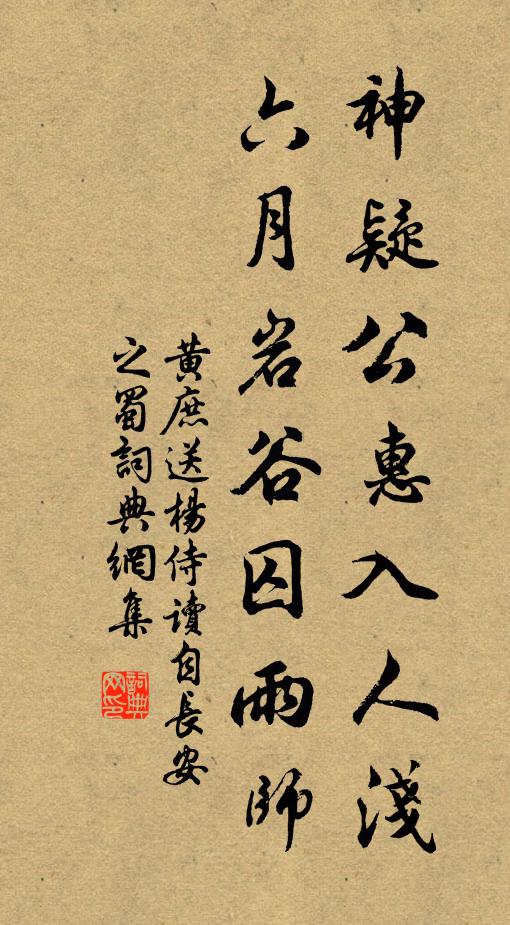 神疑公惠入人淺
六月岩谷囚雨師
黃庶送楊侍讀自長安
之蜀詞典網集
詞典
网印